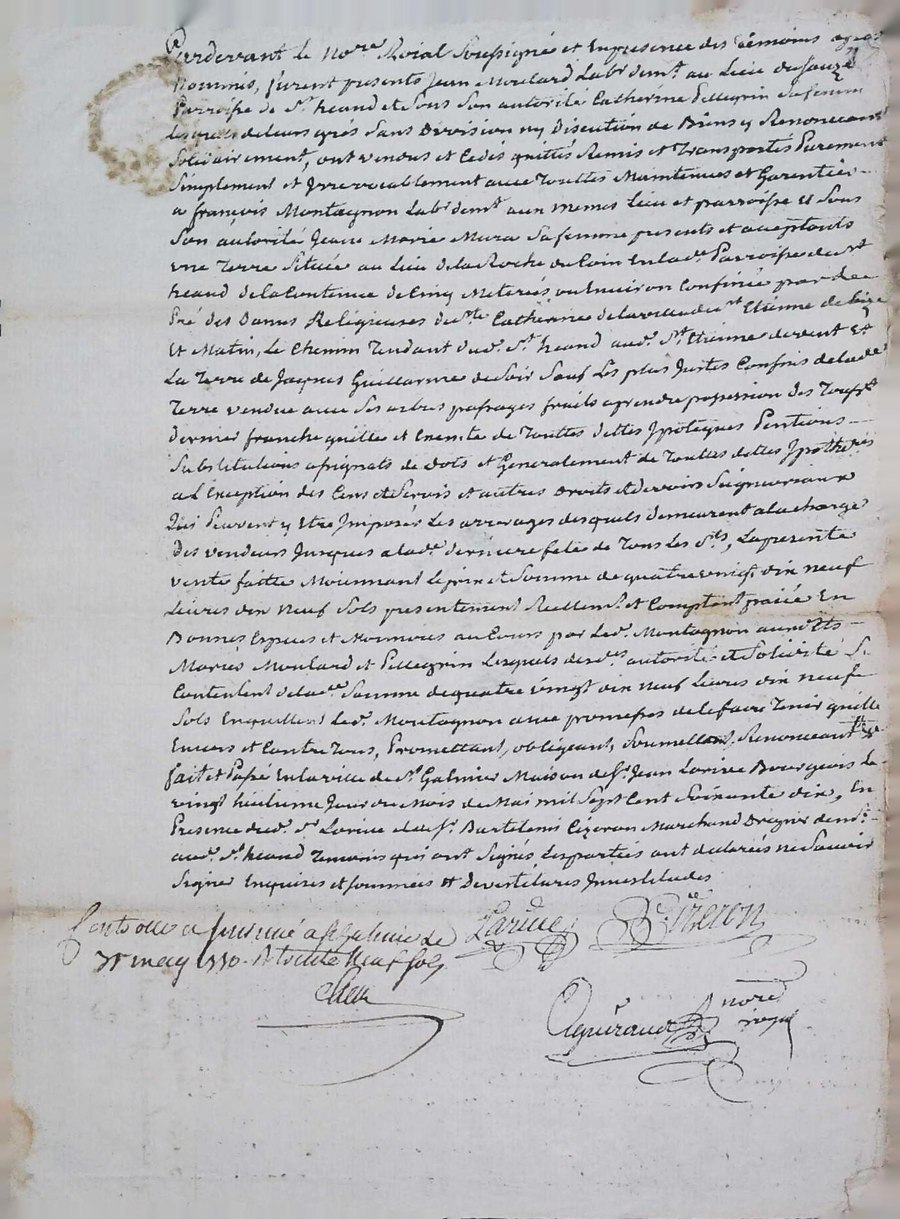 Pardevant le Nore Roial Soussigné et Enpresence des témoins apres
Nommés, furent presents Jean Moulard Labr demt au Lieu du
Parroisse de St heand et de Sous Son autorité Catherine Pellegrin Safemme
Lesquels de leurs grés Sans Division ny Discution de Biens y Renonceant
Solidairement, ont vendus et Cedés quittés Remis et Transportés Purement
Simplement et Irrevocablement avec Touttes Maintenues et Garenties
a françois Montagnon Labr demt aux memes Lieu et parroisse et Sous
Son autorité Jeane Marie Mura Safemme presents et acceptants
une Terre Située au Lieu de la Roche du Coin En lade Parroisse de St
heand de la Contenue de Cinq Meterés ou Environ Confinée par le
Pré des Dames Religieuses de Ste Catherine de St Etienne de bize
Et Matin, Le Chemin Tendant dud. St heand aud. St Etienne de vent Et
La Terre de Jacques Guillaume de Soir Sauf Les plus Justes Confins de lade
Terre vendue avec Ses arbres passages fruits a prendre possession des Toussts
dernier franche quitte et Exempte de Touttes dettes Ipoteques Pentions
Substitutions assignats de dots et Generalement de Touttes dettes Ipotheques
a L'Exception des Cens et Servis et autres Droits et devoirs Seigneuriaux
Qui Peuvent y Etre Imposés Les arrerages desquels demeurent a la charge
Des vendeurs Jusques a lade derniere fete de Tous Les Sts, La presente
vente faitte Moiennant Le prix et Somme de quatre vingt dix neuf
Livres dix Neuf Sols presentement Reellemt et Comptant paiée En
Bonnes Especes et Monnoies au Cours par Led. Montagnon auxdts
Mariés Moulard et Pellegrin Lesquels desds autorité et Solidité Se
Contentent de lade Somme de quatre vingt dix neuf Livres dix neuf
Sols Enquittent Led. Montagnon avec promesses de le faire Tenir quitte
Envers et Contre Tous, Promettant, obligeant, Soumettant, Renonceant
fait et Passé En la ville de St Galmier Maison de Sr Jean Larive Bourgeois Le
vingt huitieme Jour du Mois de Mai mil Sept Cent Soixante dix, En
Presence dud. Sr Larive et de Sr Bartelemi Cizeron Marchand Drapier demt
aud. St heand Temoins qui ont Signés Les parties ont declarées ne Savoir
Signer Enquises et sommées et Devestitures Investitudes
Larive Bmi Cizeron
Controllé a St Galmier le
31 may 1770
nore
roial